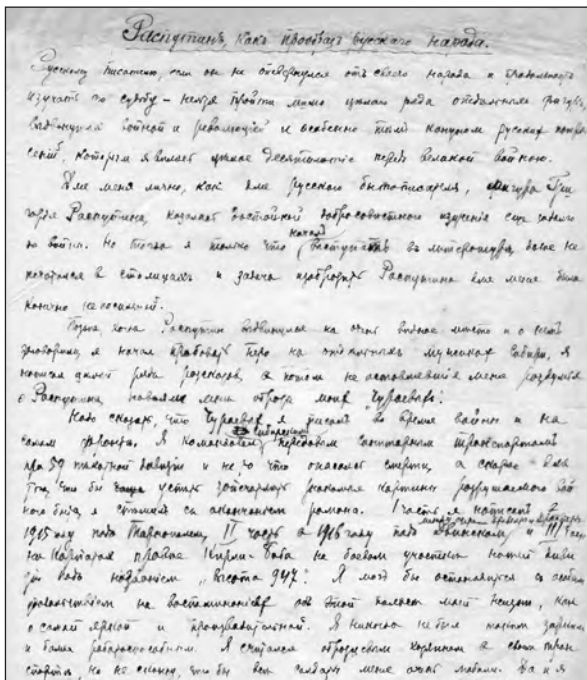 Распутинъ, какъ прообразъ русскаго народа.
Русскому писателю, если он не отвернулся отъ своего народа и продолжаетъ
изучать его судьбу – нельзя пройти мимо цѣлаго ряда отдельных фигуръ,
выдвинутых войной и революціей и особенно тѣмъ кануном русских потря
сеній, которым является цѣлое десятилѣтіе передъ великой войною.
Для меня лично, как для русского бытописателя, фигура Гри
горія Распутина, казалась достойной добросовѣстного изученія еще задолго
до войны. Но тогда я только что начал вступать в литературу, даже не
печатался в столицахъ и задача изобразить Распутина для меня была
конечно непосильной.
Позже, когда Распутин выдвинулся на очень видное мѣсто и о нем
заговорили, я начал пробовать перо на отдельных мужиках Сибири. Я
написал целый ряд разсказов, а потом не оставлявшія меня раздумья
о Распутине, навѣяли мне образы моих „Чураевых".
Надо сказать, что „Чураевых" я писал во время войны и на
самом фронте. Я командовал сибирским передовым санитарным транспортом
при 59 пехотной дивизіи и не то что опасался смерти, а скорѣе для
того, что бы успеть запечатлеть знакомыя картины разрушаемого вой
ною быта, я спешил с окончаніем романа. I часть я написал в
1915 году под Тарнополем, II часть в 1916 году под Двинском, и III часть
на Карпатах против Кирли-Баба на боевом участке нашей диви
зіи под названіем „высота 947". Я мог бы остановиться с особым
удовольствіем на воспоминаніях об этой полосе моей жизни, как
о самой яркой и производительной. Я никогда не был таким здоровым
и более работоспособным. Я считался образцовым хозяином в своем тран
спорте, но не скажу, что бы все солдаты меня очень любили. Да и я